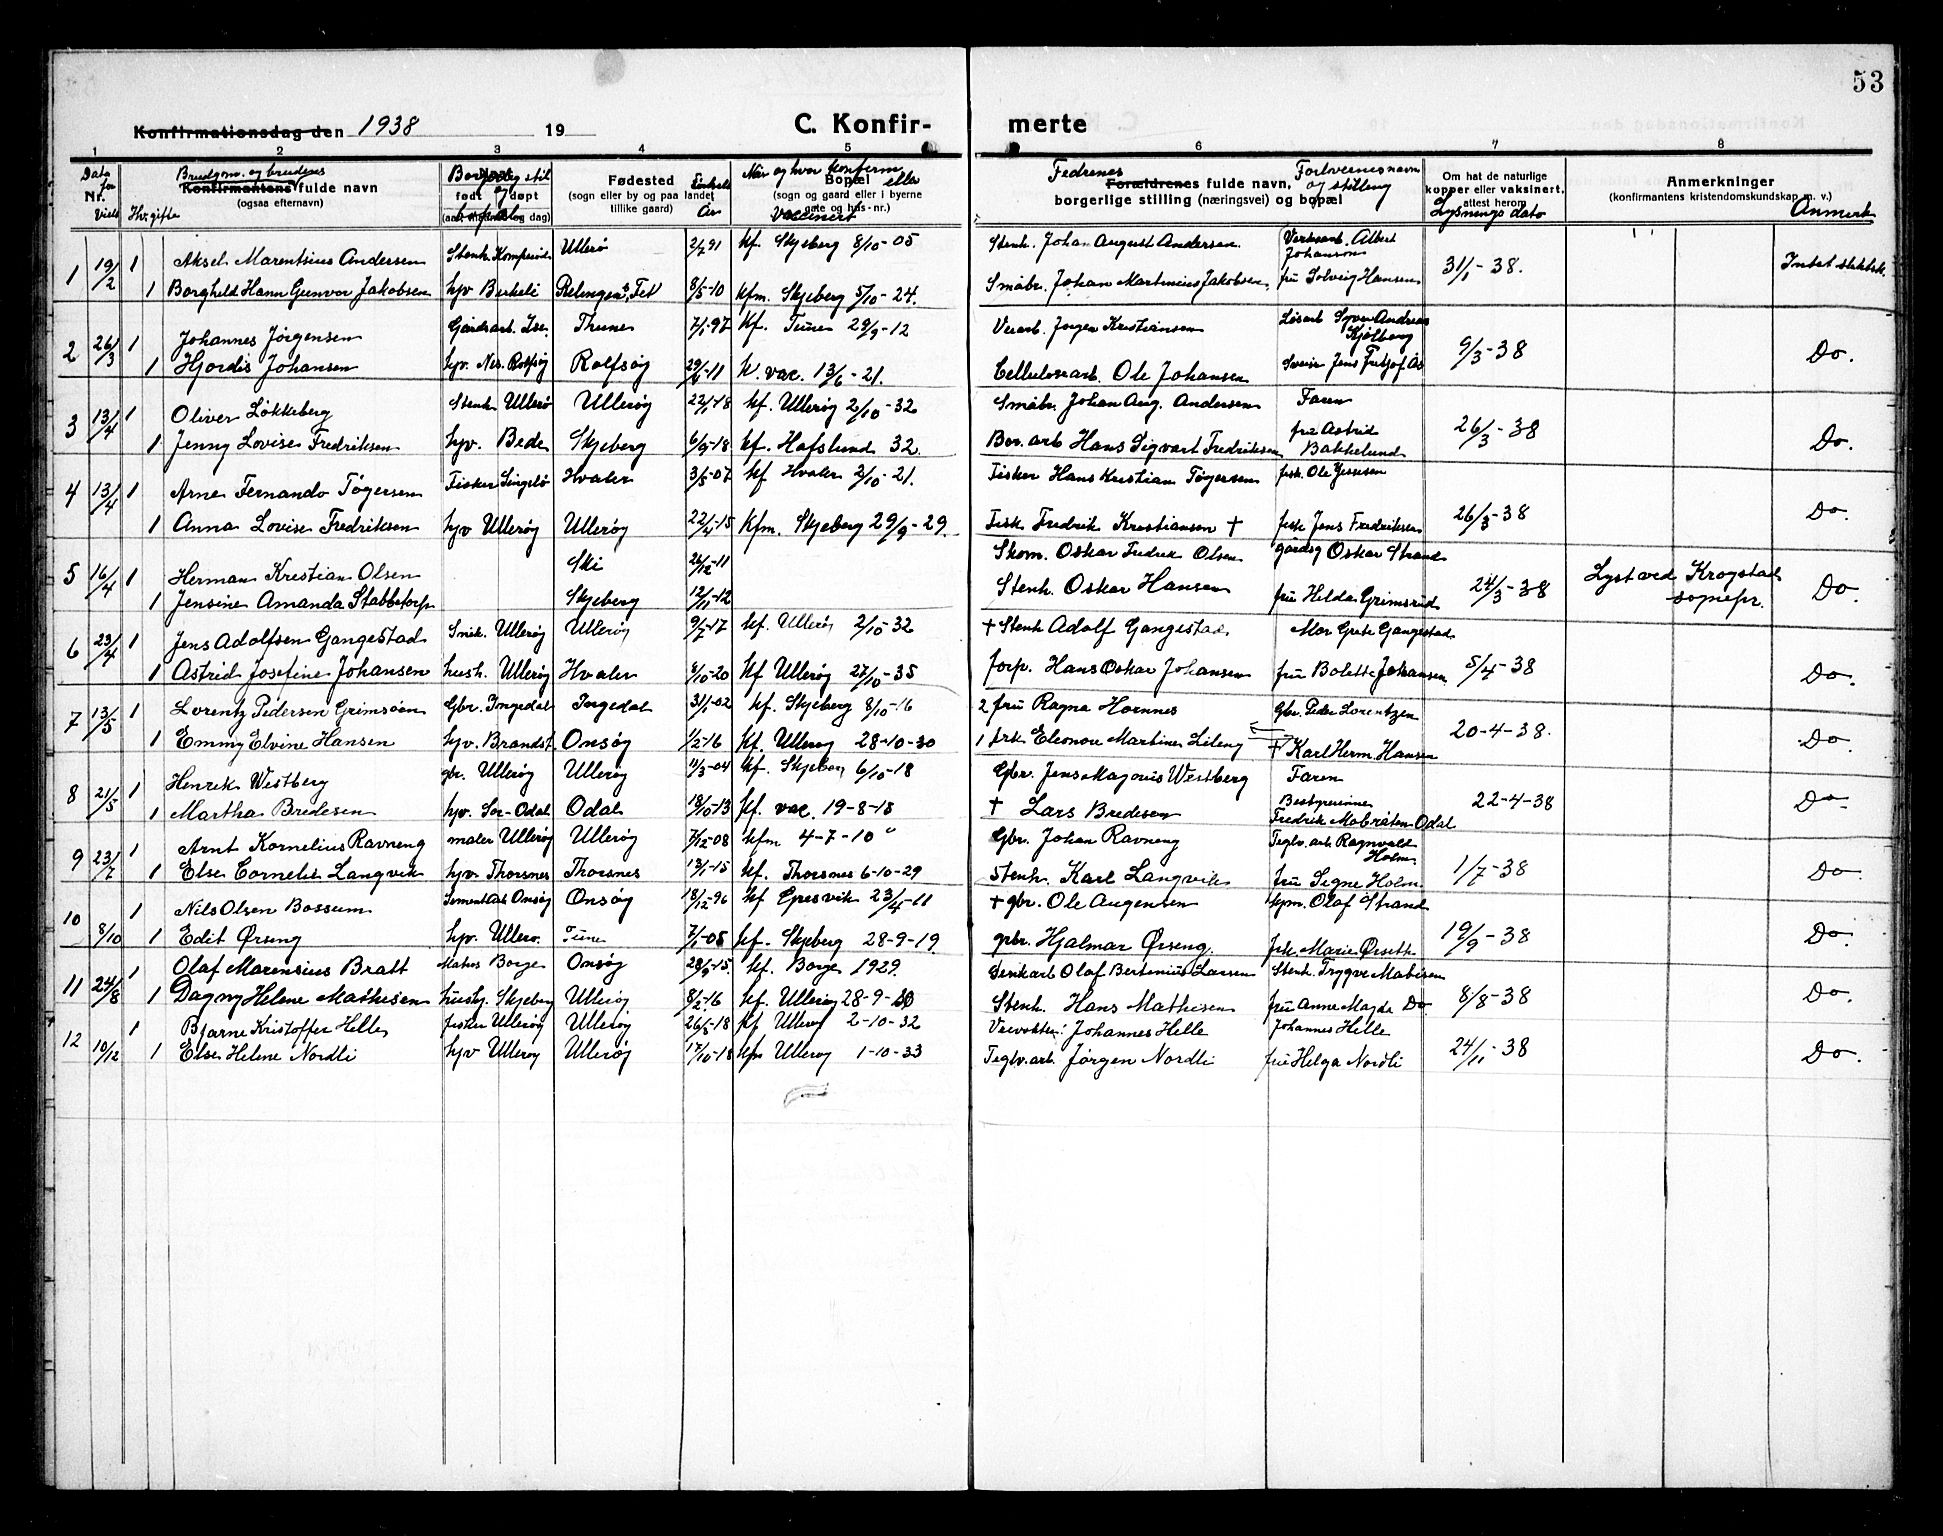 53
Konfirmationsdag den 1938 19
C. Konfir- merte
1 2 3 4 5 6 7 8
Dato for Viels Nr. Hv. gifte
Brudgm. og brudens Konfirmantens fulde navn (ogsaa efternavn)
Borgerlig stil og bopæl født døpt
Fødested (sogn eller by og paa landet tillike gaard)
Fødsels Aar
Når og hvor konferm. eller vaccinert Bopæl (sogn og gaard eller i byerne gate og hus-nr.)
Fedrenes Forældrenes fulde navn, borgerlige stilling (næringsvei) og bopæl
Forlovernes navn og stilling
Om hat de naturlige kopper eller vaksinert, attest herom Lysnings dato
Anmerkninger (konfirmantens kristendomskundskap m. v.) Anmerk
1 19/2 1 Aksel Marentsius Andersen Stenh. Ullerö 2/7 91 kf. Skjeberg 8/10-05 Stenh. Johan August Andersen. Verksarb. Albert Johanson 31/1-38. Intet slektsk.
1 Borghild Hann Gunvor Jakobsen hjv Berkeli Relingen, Fet 8/5-10 kfm. Skjeberg 5/10-24. Småbr. Johan Martinius Jakobsen, fru Solveig Hansen
2 26/3 1 Johannes Jørgensen Gårdsarb. Ise. Thune 7/1-97 kf. Tune 29/9-12 Verarb. Jørgen Kristiansen Løsarb Syver Andreas Kjölberg 9/3-38 Do.
1 Hjordis Johansen hjv. Ner. Rolfsöy Rolfsøy 29/6-11 k. vac. 13/6-21. Cellulosearb. Ole Johansen Sveiser Jens Fritjof Ås
3 13/4 1 Oliver Løkkeberg Stenh Ullerö Ullerøy 22/1-18 kf. Ullerøy 2/10-32 Småbr. Johan Aug. Andersen Faren 26/3-38 Do.
1 Jenny Lovise Fredriksen hjv. Bede Skjeberg 6/9-18 kf. Hafslund 32 Bor. arb Hans Sigvart Fredriksen fru Astrid Bakkelund
4 13/4 1 Arne Fernando Tøgersen Fisker Singelö Hvaler 3/5-07 kf Hvaler 2/10-21. Fisker Hans Kristian Tøgersen fisk. Ole Jensen 26/3-38 Do.
1 Anna Lovise Fredriksen hjv Ullerøy Ullerøy 22/4-15 Kfm. Skjeberg 29/9-29. Fisk Fredrik Kristiansen † fisk Jens Fredriksen
5 16/4 1 Herman Kristian Olsen Ski 26/12-11 Skom. Oskar Fredrik Olsen gårdsg Oskar Strand 24/3-38 Lyst ved Krogstad sognepr. Do.
1 Jensine Amanda Stabbetorp Skjeberg 12/11-12 Stenh. Oskar Hansen fru Helda Grimsrud
6 23/4 1 Jens Adolfsen Gangestad Snik. Ullerøy Ullerøy 9/7-17 kf. Ullerøy 2/10-32 † Stenh Adolf Gangestad Mor Grete Gangestad 5/4-38 Do.
1 Astrid Josefine Johansen hush. Ullerøy Hvaler 8/10-20 kf Ullerøy 27/10-35 forp. Hans Oskar Johansen fru Bolette Johansen
7 13/5 1 Lorentz Pedersen Grimsöen Gbr. Ingedal Ingedal 31/1-02 kf. Skjeberg 8/10-16 2 fru Ragna Hornnes Gbr. Peder Lorentzen 20-4-38. Do.
1 Emmy Elvine Hansen hjv. Brandst. Onsøy 1/2-16 kf. Ullerøy 28-10-30 1 frk Eleonore Martine Lileng † Karl Herm. Hansen
8 21/5 1 Henrik Westberg gbr. Ullerøy Ullerøy 11/3-04 kf. Skjeberg 6/10-18 Gbr. Jens Magnus Westberg Faren 22-4-38 Do
1 Martha Bredesen hjv. Sør-Odal Odal 18/10-13 kf. vac. 19-8-18 † Lars Bredesen Bestyrerinne Fredrik Mobråten Odal
9 23/7 1 Arnt Kornelius Ravneng maler Ullerøy Ullerøy 7/12-08 kfm 4-7-10 " Gbr. Johan Ravneng Teglv. arb. Ragnvald Holm 1/7-38 Do.
1 Else Cornelie Langvik hjv. Thorsnes Thorsnes 13/1-15 kf. Thorsnes 6-10-29 Stenh. Karl Langvik fru Signe Holm
10 8/10 1 Nils Olsen Bossum Sementarb Onsöy Onsøy 18/12-96 kf Gresvik 23/4-11 † gbr. Ole Augensen kjm. Olaf Strand 19/9-38 Do.
1 Edit Ørseng hjv. Ullerø. Tune 7/1-05 kf. Skjeberg 28-9-19. gbr. Hjalmar Ørseng. frk. Marie Ørseth
11 24/8 1 Olaf Marensius Bratt Matros Borge Onsøy 28/9-15. kf. Borge 1929. Olaf Bertinius Larsen Stenh. Trygve Matisen 8/8-38 Do.
1 Dagny Helene Mathisen hushj. Skjeberg Ullerøy 8/2-16 kf. Ullerøy 28-9-30 Stenh. Hans Mathisen fru Anne Magda Do
12 10/12 1 Bjarne Kristoffer Helle fisker Ullerøy Ullerøy 26/5-18 Kf Ullerøy 2-10-32 Johannes Helle Johannes Helle 24/11-38 Do.
1 Else Helene Nordli hjv Ullerøy Ullerøy 17/10-18 kfm Ullerøy 1-10-33 Teglv. arb. Jørgen Nordli fru Helga Nordli